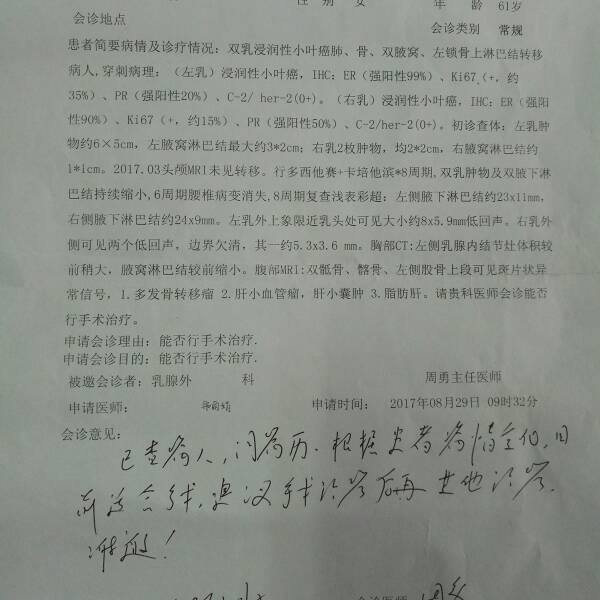 性 别 女 年 龄 61岁
会诊地点
会诊类别 常规
患者简要病情及诊疗情况: 双乳浸润性小叶癌肺、骨、双腋窝、左锁骨上淋巴结转移
病人,穿刺病理:(左乳)浸润性小叶癌, IHC: ER(强阳性99%)、Ki67 (+, 约
35%)、PR(强阳性20%)、C-2/ her-2(0+)。(右乳)浸润性小叶癌, IHC: ER(强阳
性90%)、Ki67(+, 约15%)、PR(强阳性50%)、C-2/her-2(0+)。初诊查体: 左乳肿
物约6×5cm, 左腋窝淋巴结最大约3*2cm; 右乳2枚肿物, 均2*2cm, 右腋窝淋巴结约
1*1cm。2017.03头颅MRI未见转移。行多西他赛+卡培他滨*8周期, 双乳肿物及双腋下淋
巴结持续缩小, 6周期腰椎病变消失, 8周期复查浅表彩超: 左侧腋下淋巴结约23x11mm,
右侧腋下淋巴结约24x9mm。左乳外上象限近乳头处可见大小约8x5.9mm低回声。右乳外
侧可见两个低回声, 边界欠清, 其一约5.3x3.6 mm。胸部CT:左侧乳腺内结节灶体积较
前稍大, 腋窝淋巴结较前缩小。腹部MRI:双骶骨、髂骨、左侧股骨上段可见斑片状异
常信号, 1.多发骨转移瘤 2.肝小血管瘤, 肝小囊肿 3.脂肪肝。请贵科医师会诊能否
行手术治疗。
申请会诊理由: 能否行手术治疗.
申请会诊目的: 能否行手术治疗.
被邀会诊者: 乳腺外 科 周勇主任医师
申请医师: 申请时间: 2017年08月29日 09时32分
会诊意见:
已查病人, 阅病历. 根据患者病情
手术, 建议 后再 其他治疗.
谢邀!
会诊医师